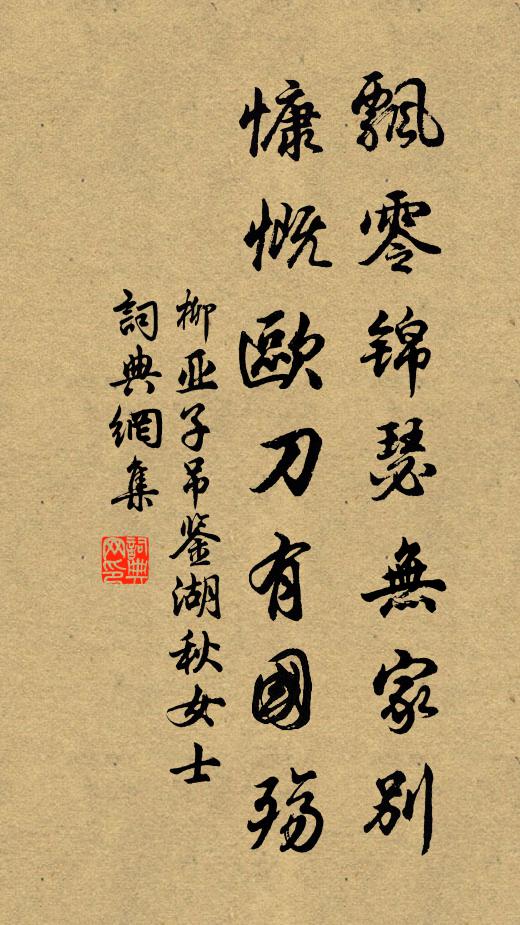 飄零锦瑟無家別
慷慨歐刀有國殤
柳亚子吊鉴湖秋女士
詞典網集
詞典网印